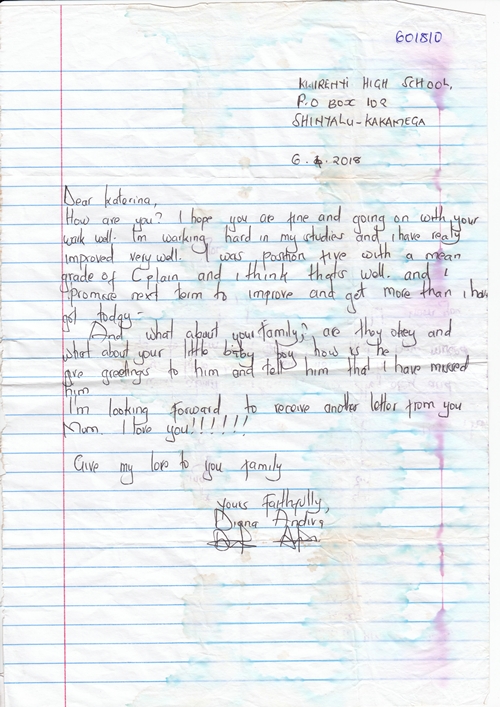 601810
KWIRENYI HIGH SCHOOL,
P.O BOX 102
SHINYALU-KAKAMEGA
6. 4. 2018
Dear Katerina,
How are you? I hope you are fine and going on with your
work well. I'm working hard in my studies and i have realy
improved very well. I was position five with a mean
grade of C plain and i think that's well. and I
promise next term to improve and get more than i have
got today-
And what about your family, are they okey and
what about your little baby boy how is he
give greetings to him and tell him that I have missed
him
I'm looking forward to receive another letter from you
Mum. I love you!!!!!!!
Give my love to you family
Yours Faithfully,
Diana Andiva